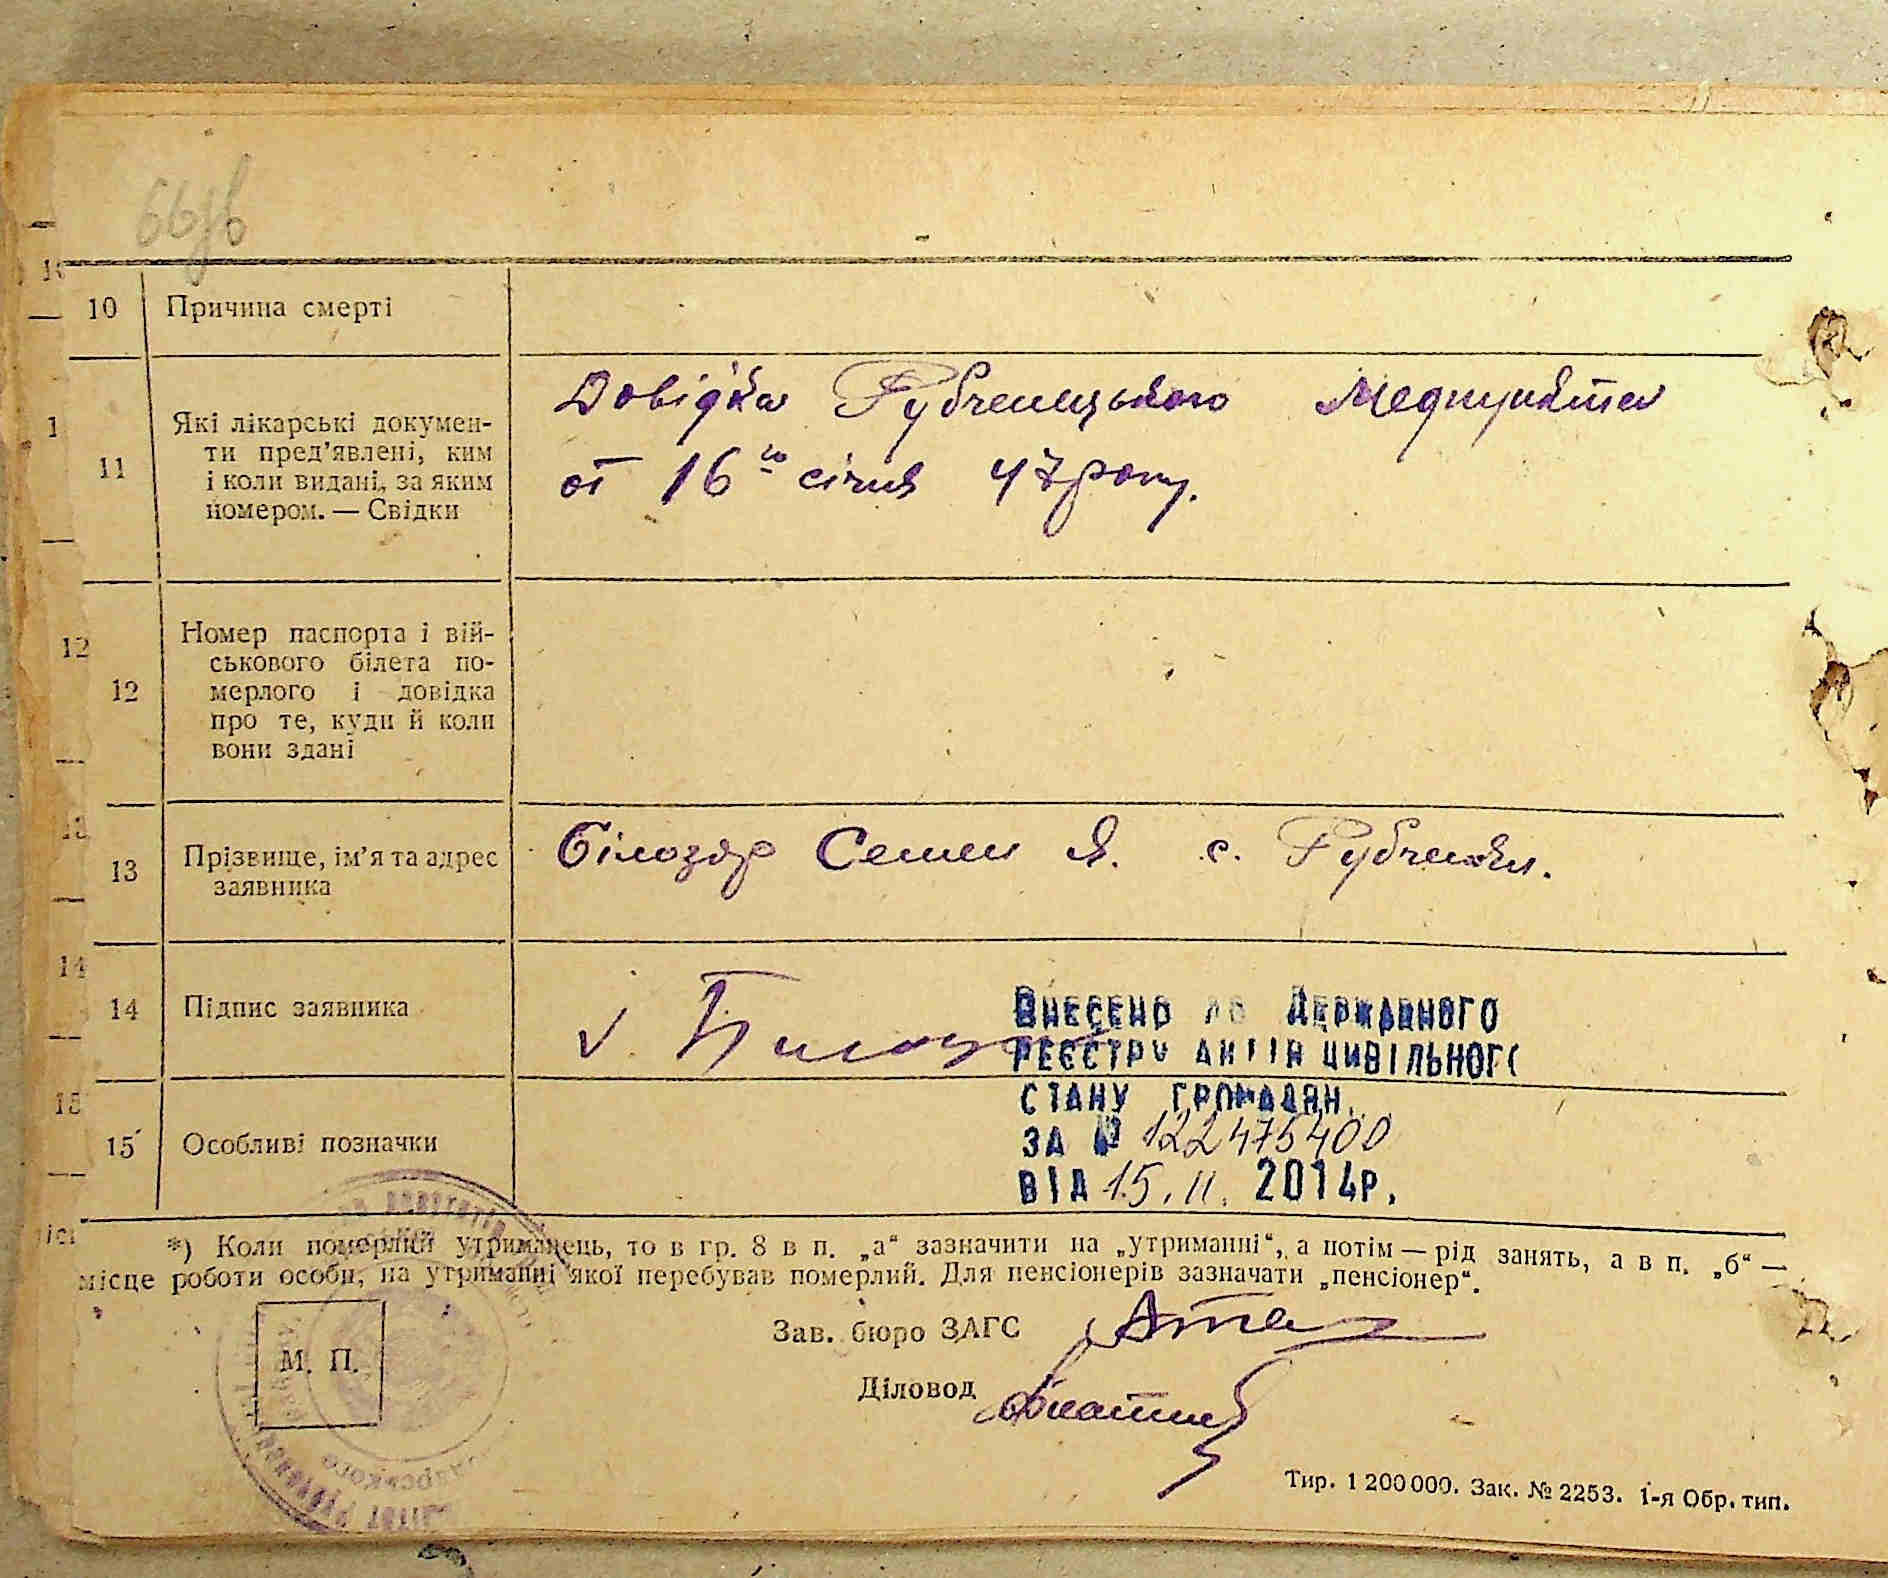 66зв
10 Причина смерті
11 Які лікарські докумен-
ти пред’явлені, ким
і коли видані, за яким
номером. — Свідки
Довідка Рубченського Медпункта
от 16го січня 47 року.
12 Номер паспорта і вій-
ськового білета по-
мерлого і довідка
про те, куди й коли
вони здані
13 Прізвище, ім’я та адрес
заявника
Білозор Семен Я. с. Рубченки.
14 Підпис заявника
15 Особливі позначки
Внесено до Державного
реєстру актів цивільного
стану громадян
за № 122475400
від 15.11. 2014р.
*) Коли померлий утриманець, то в гр. 8 в п. „а“ зазначити на „утриманні“, а потім — рід занять, а в п. „б“ —
місце роботи особи, на утриманні якої перебував померлий. Для пенсіонерів зазначати „пенсіонер“.
Зав. бюро ЗАГС
М. П.
Діловод
Тир. 1 200 000. Зак. № 2253. 1-я Обр. тип.